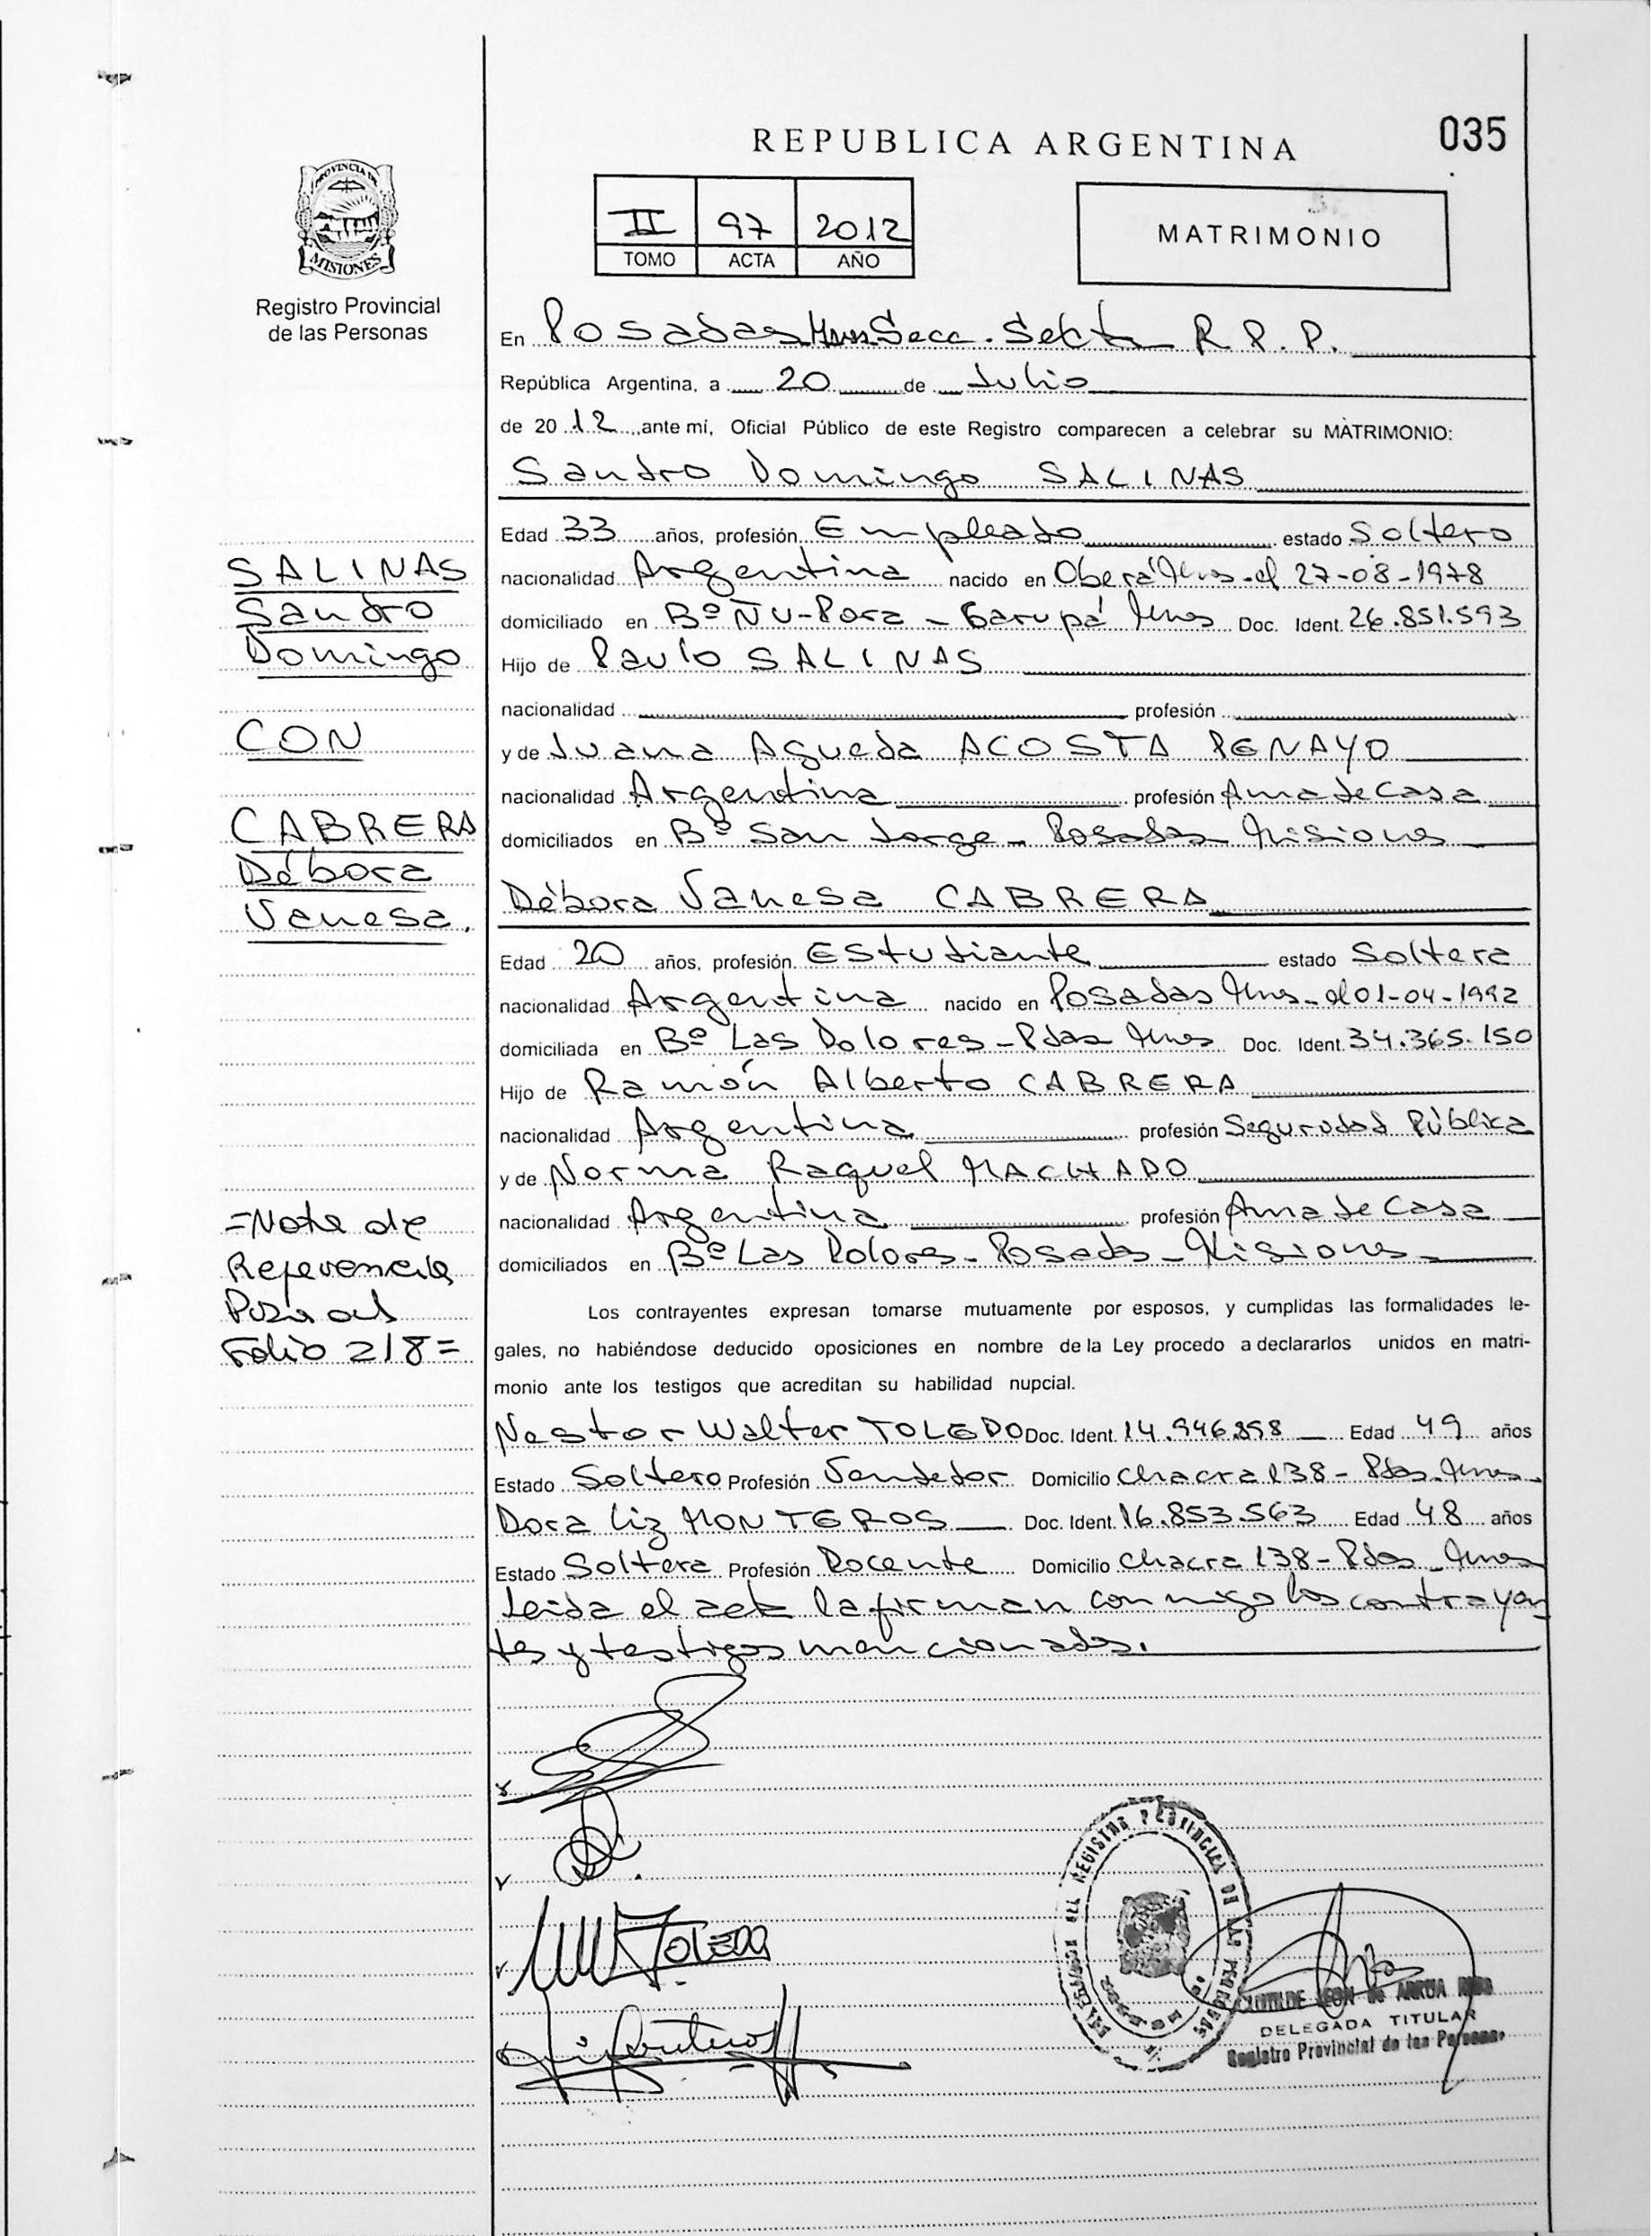 REPUBLICA ARGENTINA
035
PROVINCIA DE
MISIONES
Registro Provincial
de las Personas
II 97 2012
TOMO ACTA AÑO
MATRIMONIO
En Posadas Mnes Secc. Sexta R.P.P.
República Argentina, a 20 de Julio
de 2012, ante mí, Oficial Público de este Registro comparecen a celebrar su MATRIMONIO:
Sandro Domingo SALINAS
Edad 33 años, profesión Empleado estado Soltero
nacionalidad Argentina nacido en Oberá Mnes - el 27-08-1978
domiciliado en Bº Ñu-Pora - Garupá Mnes Doc. Ident. 26.851.593
Hijo de Paulo SALINAS
nacionalidad profesión
y de Juana Agueda ACOSTA PENAYO
nacionalidad Argentina profesión Ama de Casa
domiciliados en Bº San Jorge - Posadas Misiones
Débora Vanesa CABRERA
Edad 20 años, profesión Estudiante estado Soltera
nacionalidad Argentina nacido en Posadas Mnes - el 01-04-1992
domiciliada en Bº Las Dolores - Pdas Mnes Doc. Ident. 34.365.150
Hijo de Ramón Alberto CABRERA
nacionalidad Argentina profesión Seguridad Pública
y de Norma Raquel MACHADO
nacionalidad Argentina profesión Ama de Casa
domiciliados en Bº Las Dolores - Posadas - Misiones
Los contrayentes expresan tomarse mutuamente por esposos, y cumplidas las formalidades le-
gales, no habiéndose deducido oposiciones en nombre de la Ley procedo a declararlos unidos en matri-
monio ante los testigos que acreditan su habilidad nupcial.
Nestor Walter TOLEDO Doc. Ident. 14.946.898 Edad 49 años
Estado Soltero Profesión Vendedor Domicilio Chacra 138 - Pdas. Mnes
Dora Liz MONTEROS Doc. Ident. 16.853.563 Edad 48 años
Estado Soltera Profesión Docente Domicilio Chacra 138 - Pdas - Mnes
Leida el acta la firman conmigo los contrayen
tes y testigos mencionados.
SALINAS
Sandro
Domingo
CON
CABRERA
Débora
Vanesa.
=Nota de
Referencia
Pasa al
Folio 218=
TOLEDO
DEL REGISTRO PROVINCIAL DE LAS PERSONAS
CLOTILDE LEON de ARRUA
DELEGADA TITULAR
Registro Provincial de las Personas